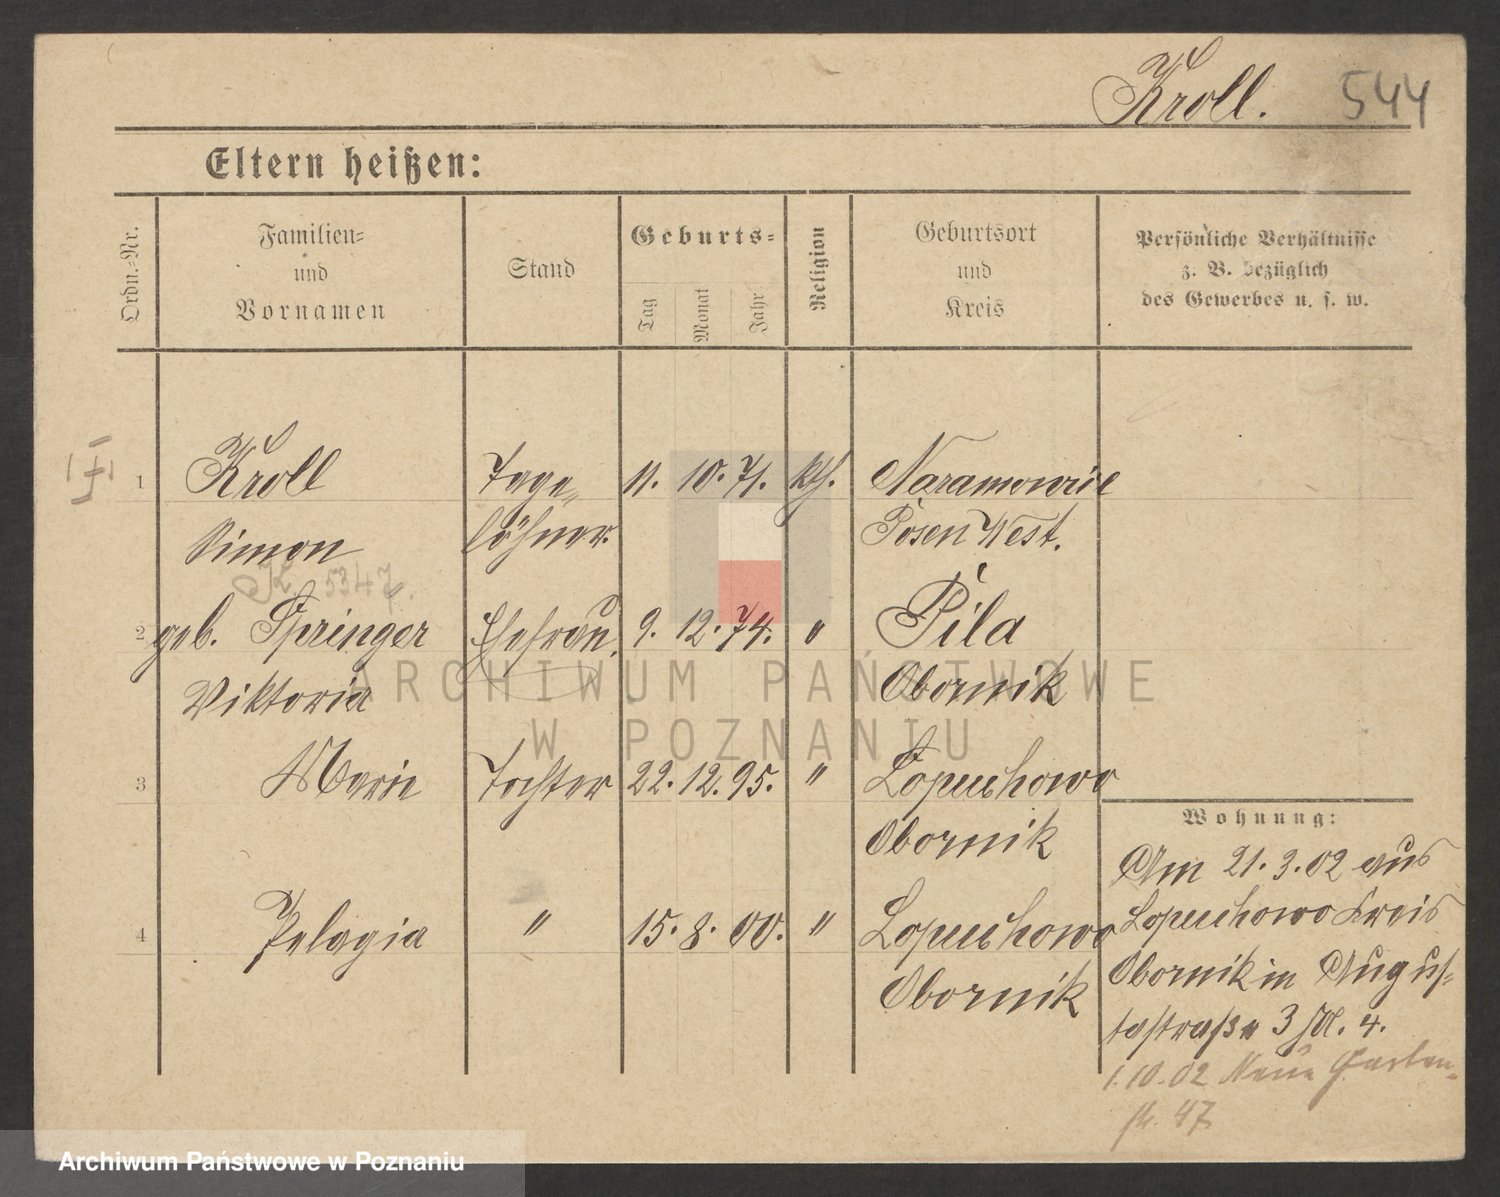 Kroll. 544
Eltern heißen:
Ordn.-Nr.
Familien-
und
Vornamen
Stand
Geburts-
Tag Monat Jahr
Religion
Geburtsort
und
Kreis
Persönliche Verhältnisse
z. B. bezüglich
des Gewerbes u. s. w.
1 Kroll Tage- 11. 10. 71. kth. Naramowice
Simon löhner. Posen West.
K 5347.
2 geb. Springer Ehefrau. 9. 12. 74. " Pila
Viktoria Obornik
3 Marie Tochter 22. 12. 95. " Lopuchowo
Obornik
4 Pelagia " 15. 8. 00. " Lopuchowo
Obornik
Wohnung:
Am 21. 3. 02 aus
Lopuchowo Kreis
Obornik in Augus-
tastraße 3 Hl. 4.
1. 10. 02 Neue Garten-
str. 47.
ARCHIWUM PAŃSTWOWE
W POZNANIU
Archiwum Państwowe w Poznaniu